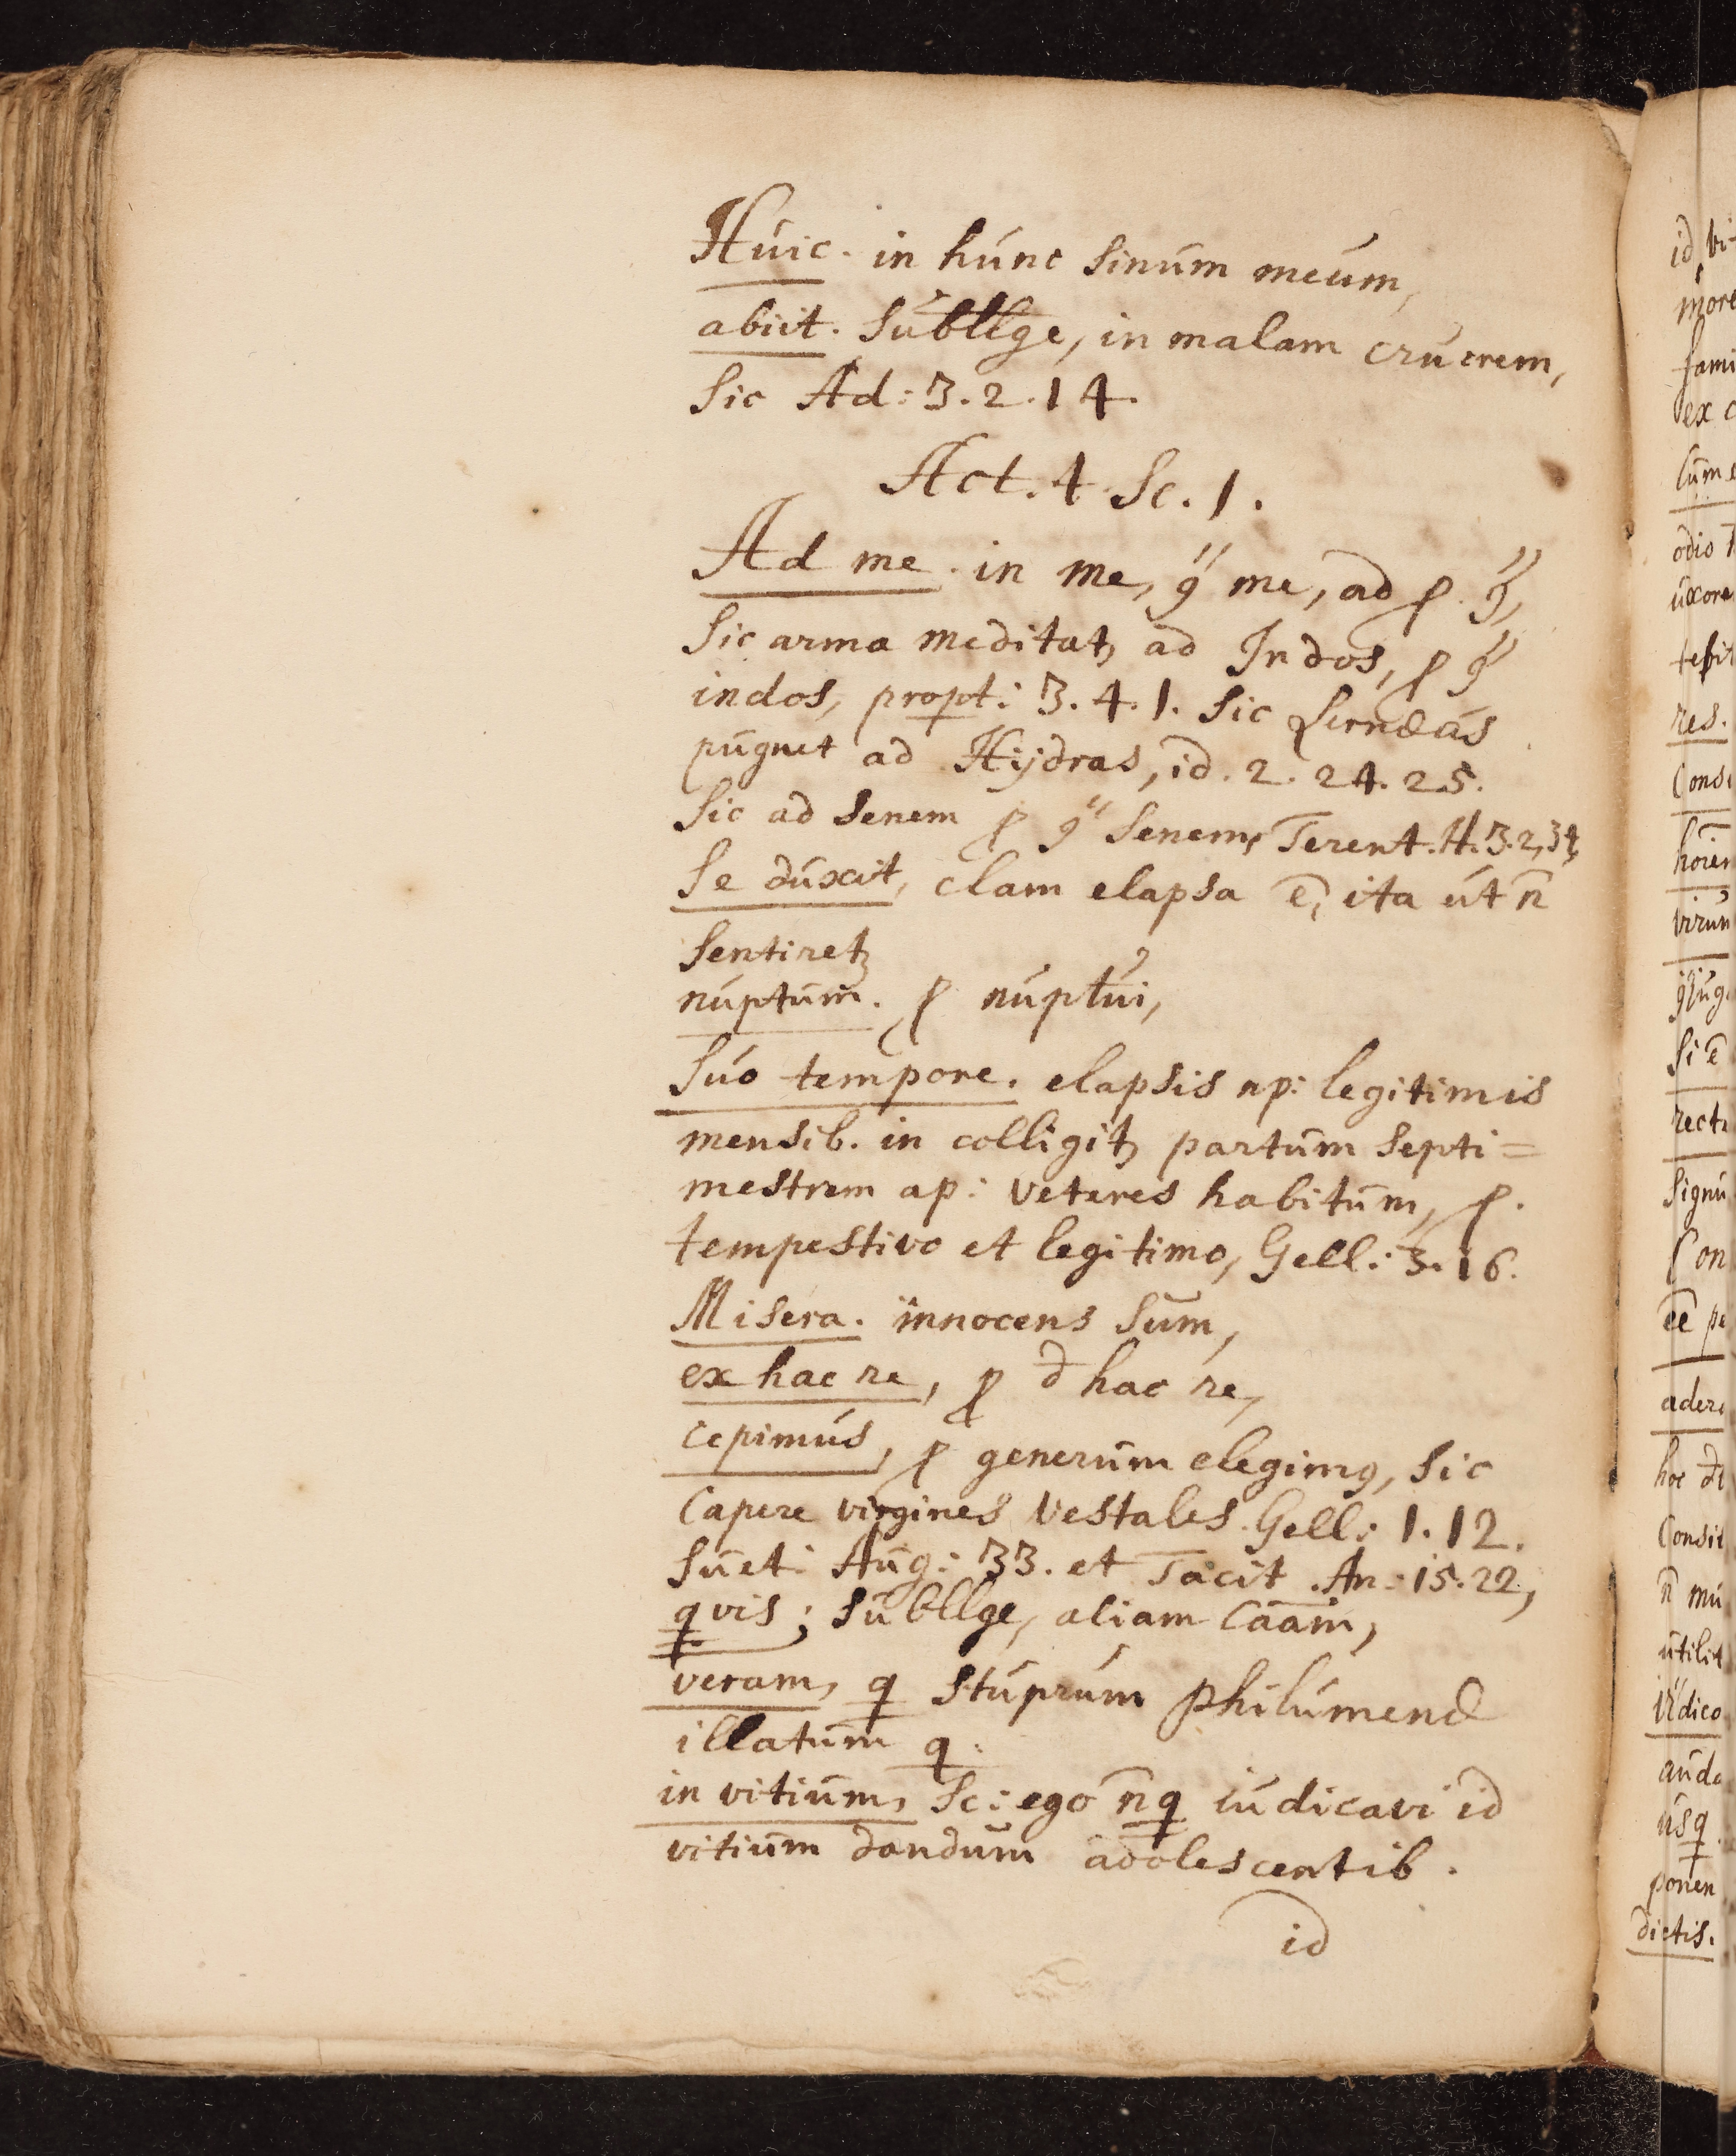 Húic. in húnc sinúm meúm,
abiit. súbllge, in malam crucrem,
sic Ad: 3. 2. 14.
Act. 4 Sc. 1.
Ad me. in me, ꝯ me, ad ꝑ. ꝯ,
sic arma meditatꝫ ad Indos, ꝑ ꝯ
indos, propt: 3. 4. 1. sic Lernæas
pugnet ad Hÿdras, id. 2. 24. 25.
sic ad senem ꝑ ꝯ senem, Terent. H. 3. 2, 34,
se dúxit, clam elapsa ē, ita út n̄
sentiretꝫ
núptum. ꝑ núptui,
súo tempore. elapsis np: legitimis
mensib. in colligitꝫ partúm septi=
mestrem ap: veteres habitúm, ꝑ.
tempestivo et legitimo, Gell: 3. 16.
Misera. innocens súm,
ex hac re, ꝑ d hac re,
cepimús, ꝑ generúm elegimꝯ, sic
capere virgines vestales. Gell: 1. 12.
súet: Aúg: 33. et Tacit. An: 15. 22,
qvis; súbllge, aliam caam,
veram, q stúprúm philúmenæ
illatúm q:
in vitiúm, Sc: ego n̄q iúdicavi id
vitiúm dandúm adolescentib.
id
id vi-
more
fami
ex c
cúm e
odio
úxore
res.
Conse
virum
si ē
recte
signú
Con
ēē pe
adere
Consit
n̄ mú
útilit
aúda
úsq
ponen
dictis.